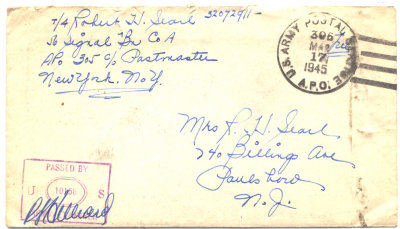 T/4 Robert H. Searl 32072911
56 Signal Bn Co A
APO 305 c/o Postmaster
New York. N.Y.
U.S. ARMY POSTAL SERVICE
305
MAR
17
1945
A.P.O.
Free
Mrs R. H. Searl
740 Billings Ave
Paulsboro
N. J.
PASSED BY
U S